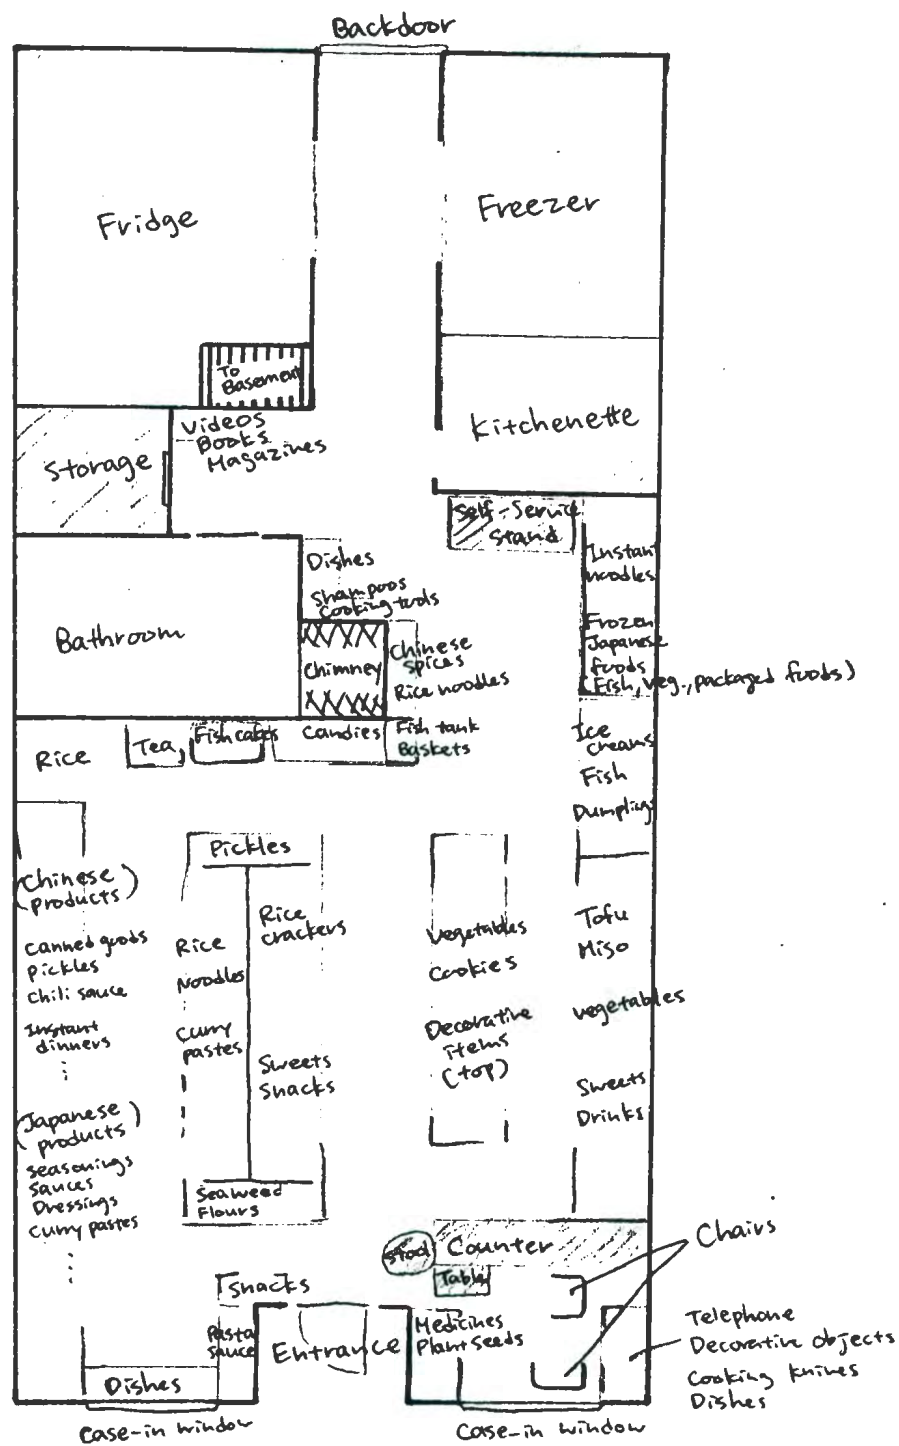 Backdoor
Fridge
Freezer
To
Basement
Kitchenette
Videos
Books
Magazines
Storage
Self-Service
Stand
Dishes
Shampoos
Cooking tools
Instant
noodles
Bathroom
Chimney
Chinese
spices
Rice noodles
Frozen
Japanese
foods
(Fish, veg., packaged foods)
Rice
Tea
Fish cakes
Candies
Fish tank
Baskets
Ice
creams
Fish
Dumplings
Pickles
(Chinese
products)
canned goods
pickles
chili sauce
Instant
dinners
⋮
(Japanese
products)
seasonings
sauces
Dressings
curry pastes
⋮
Rice
Noodles
curry
pastes
Rice
crackers
Sweets
Snacks
Seaweed
Flours
Vegetables
Cookies
Decorative
items
(top)
Tofu
Miso
vegetables
Sweets
Drinks
Stool
Counter
Table
Chairs
Snacks
Pasta
sauce
Entrance
Medicines
Plant Seeds
Telephone
Decorative objects
Cooking knives
Dishes
Dishes
case-in window
case-in window